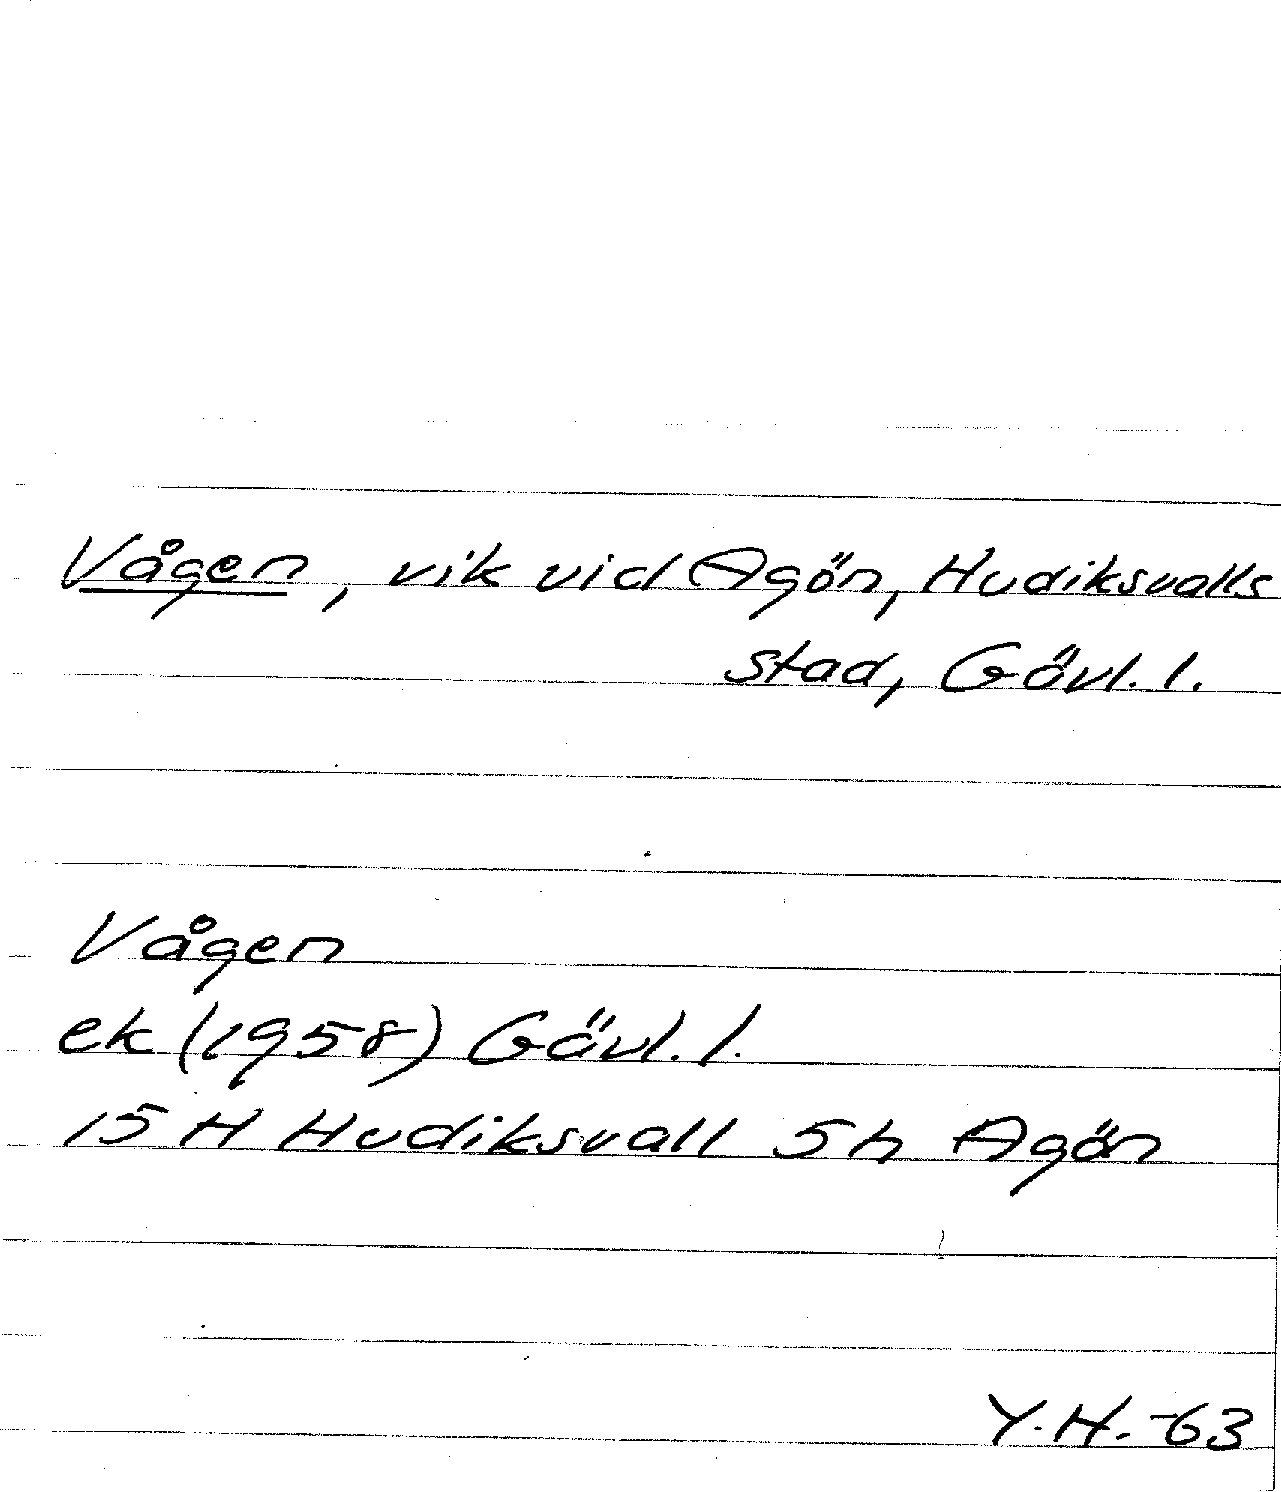 Vågen, vik vid Agön, Hudiksvalls
stad, Gävl. l.
Vågen
ek (1958) Gävl. l.
15 H Hudiksvall 5h Agön
Y.H. -63